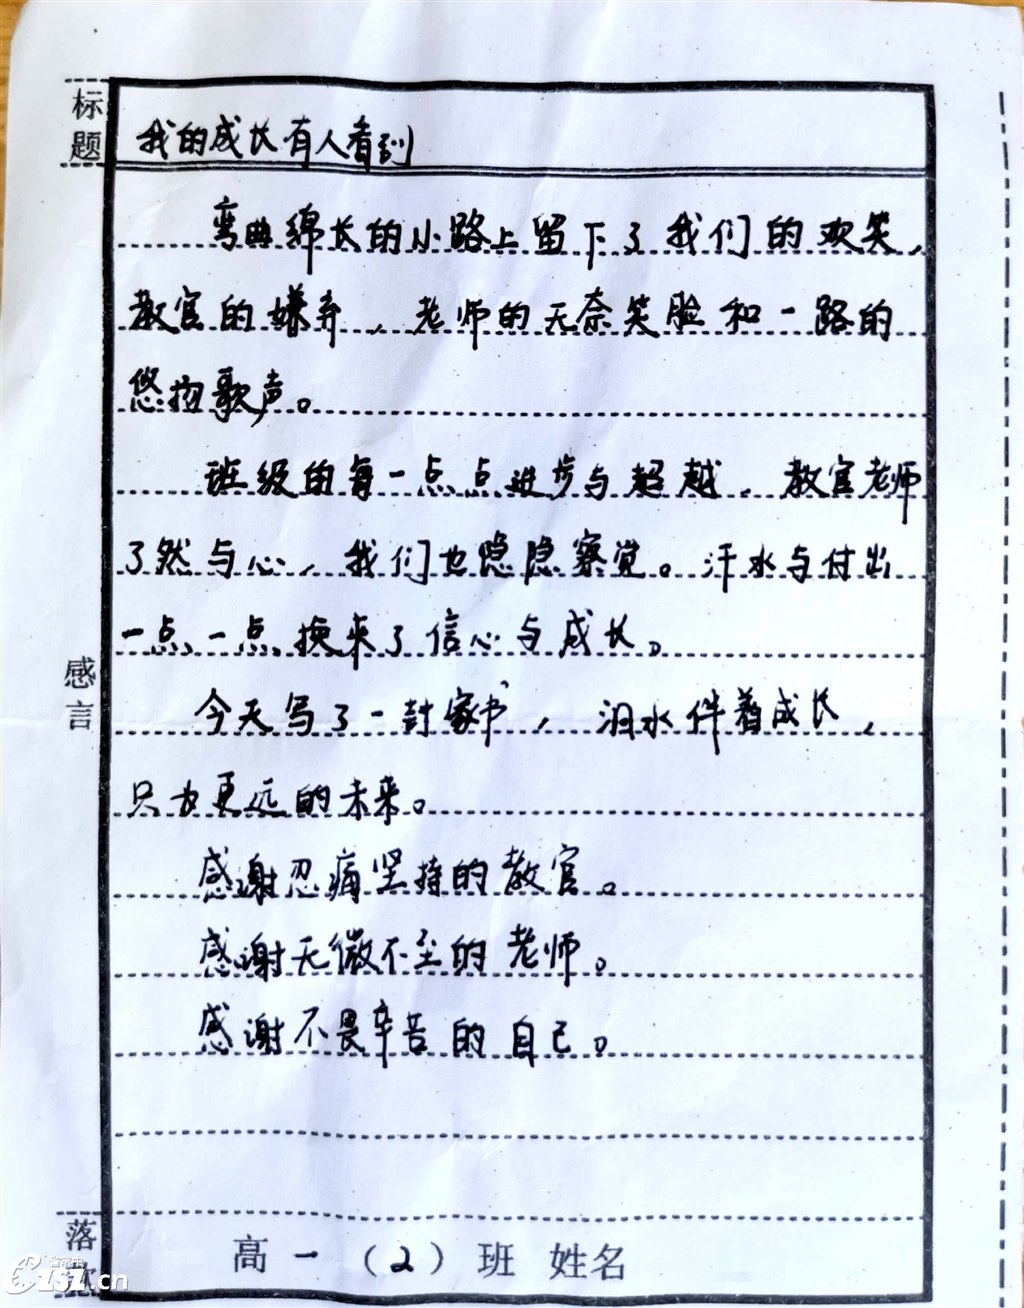 标题
我的成长有人看到
弯曲绵长的小路上留下了我们的欢笑，
教官的嫌弃，老师的无奈笑脸和一路的
悠扬歌声。
班级的每一点点进步与超越，教官老师
了然与心，我们也隐隐察觉。汗水与付出
一点一点换来了信心与成长。
感言
今天写了一封家书，泪水伴着成长，
只为更远的未来。
感谢忍痛坚持的教官。
感谢无微不至的老师。
感谢不畏辛苦的自己。
落款
高一（2）班 姓名